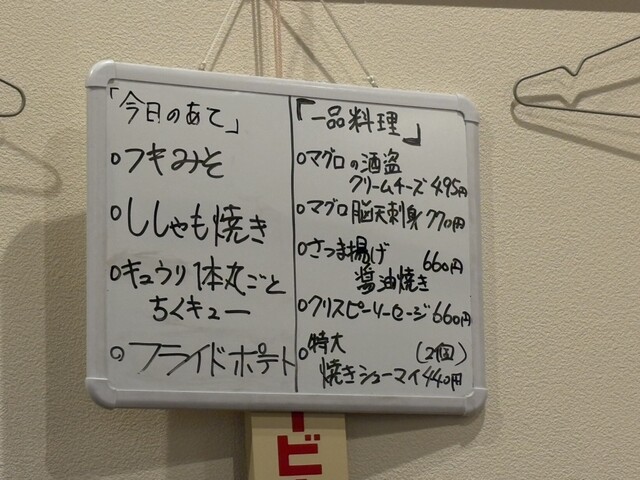 「今日のあて」
○フキみそ
○ししゃも焼き
○キュウリ1本丸ごと
ちくキュー
○フライドポテト
「一品料理」
○マグロの酒盗
クリームチーズ 495円
○マグロ脳天刺身 770円
○さつま揚げ 660円
醤油焼き
○クリスピーソーセージ 660円
○特大 (2個)
焼きシューマイ 440円
ービ